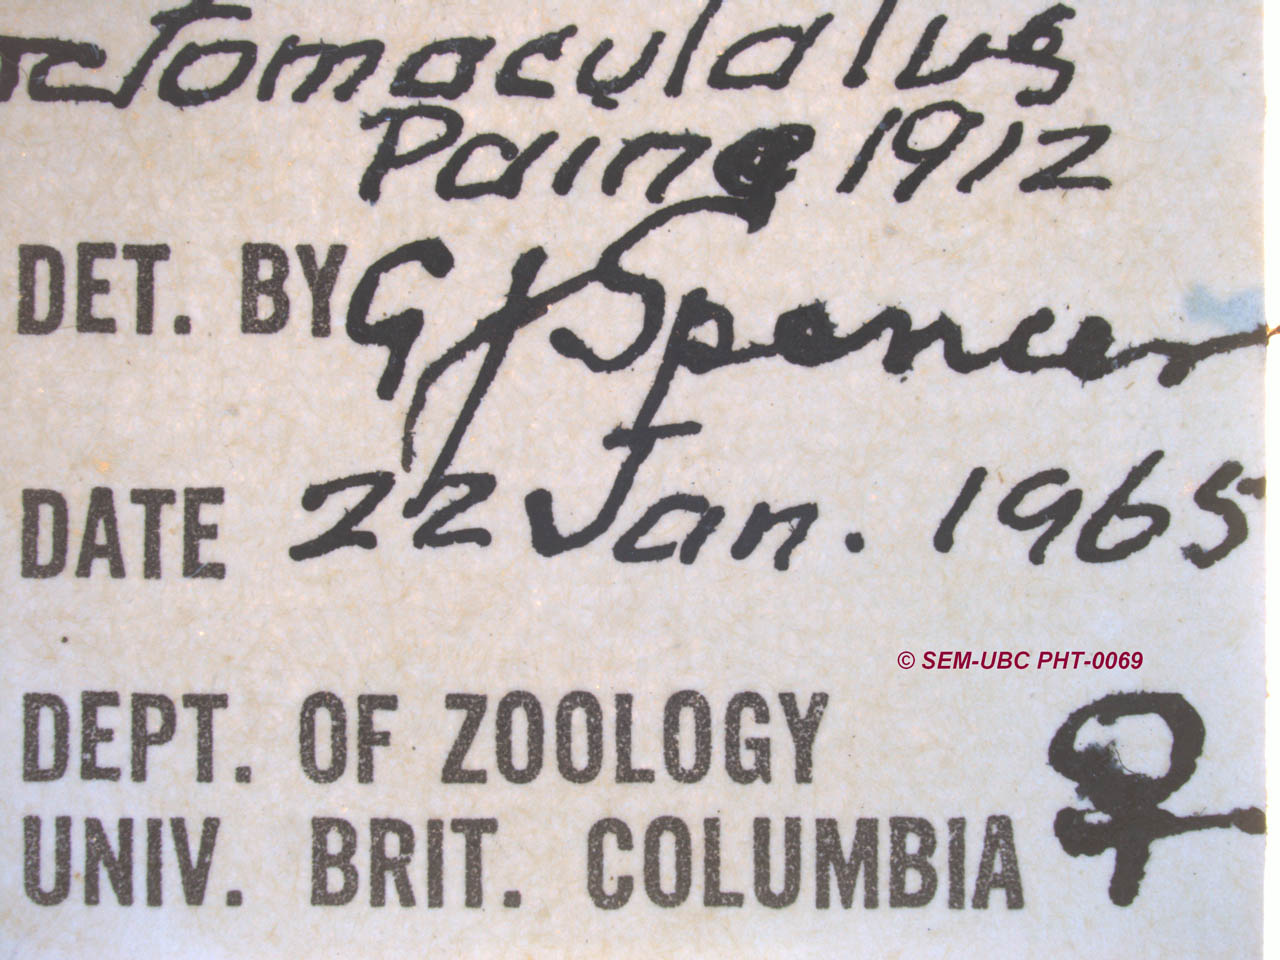 octomaculatus
Paine 1912
DET. BY G J Spencer
DATE 22 Jan. 1965
© SEM-UBC PHT-0069
DEPT. OF ZOOLOGY ♀
UNIV. BRIT. COLUMBIA